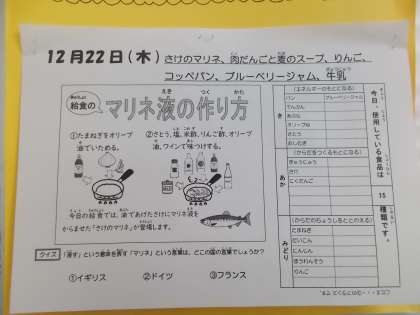 12月22日(木) さけのマリネ、肉だんごと麦のスープ、りんご、
コッペパン、ブルーベリージャム、牛乳
給食の
マリネ液の作り方
①たまねぎをオリーブ
油でいためる。
②さとう、塩、米酢、りんご酢、オリーブ
油、ワインで味つけする。
今日の給食では、油であげたさけにマリネ液を
からませた「さけのマリネ」が登場します。
クイズ 「浸す」という意味を表す「マリネ」という言葉は、どこの国の言葉でしょうか?
①イギリス ②ドイツ ③フランス
今日、使用している食品は
15
種類です。
き
(エネルギーのもとになる)
パン ブルーベリージャム
でんぷん
あぶら
オリーブ油
さとう
おしむぎ
あか
(からだをつくるもとになる)
ぎゅうにゅう
さけ
にくだんご
みどり
(からだのちょうしをととのえる)
たまねぎ
だいこん
にんじん
ほうれんそう
りんご